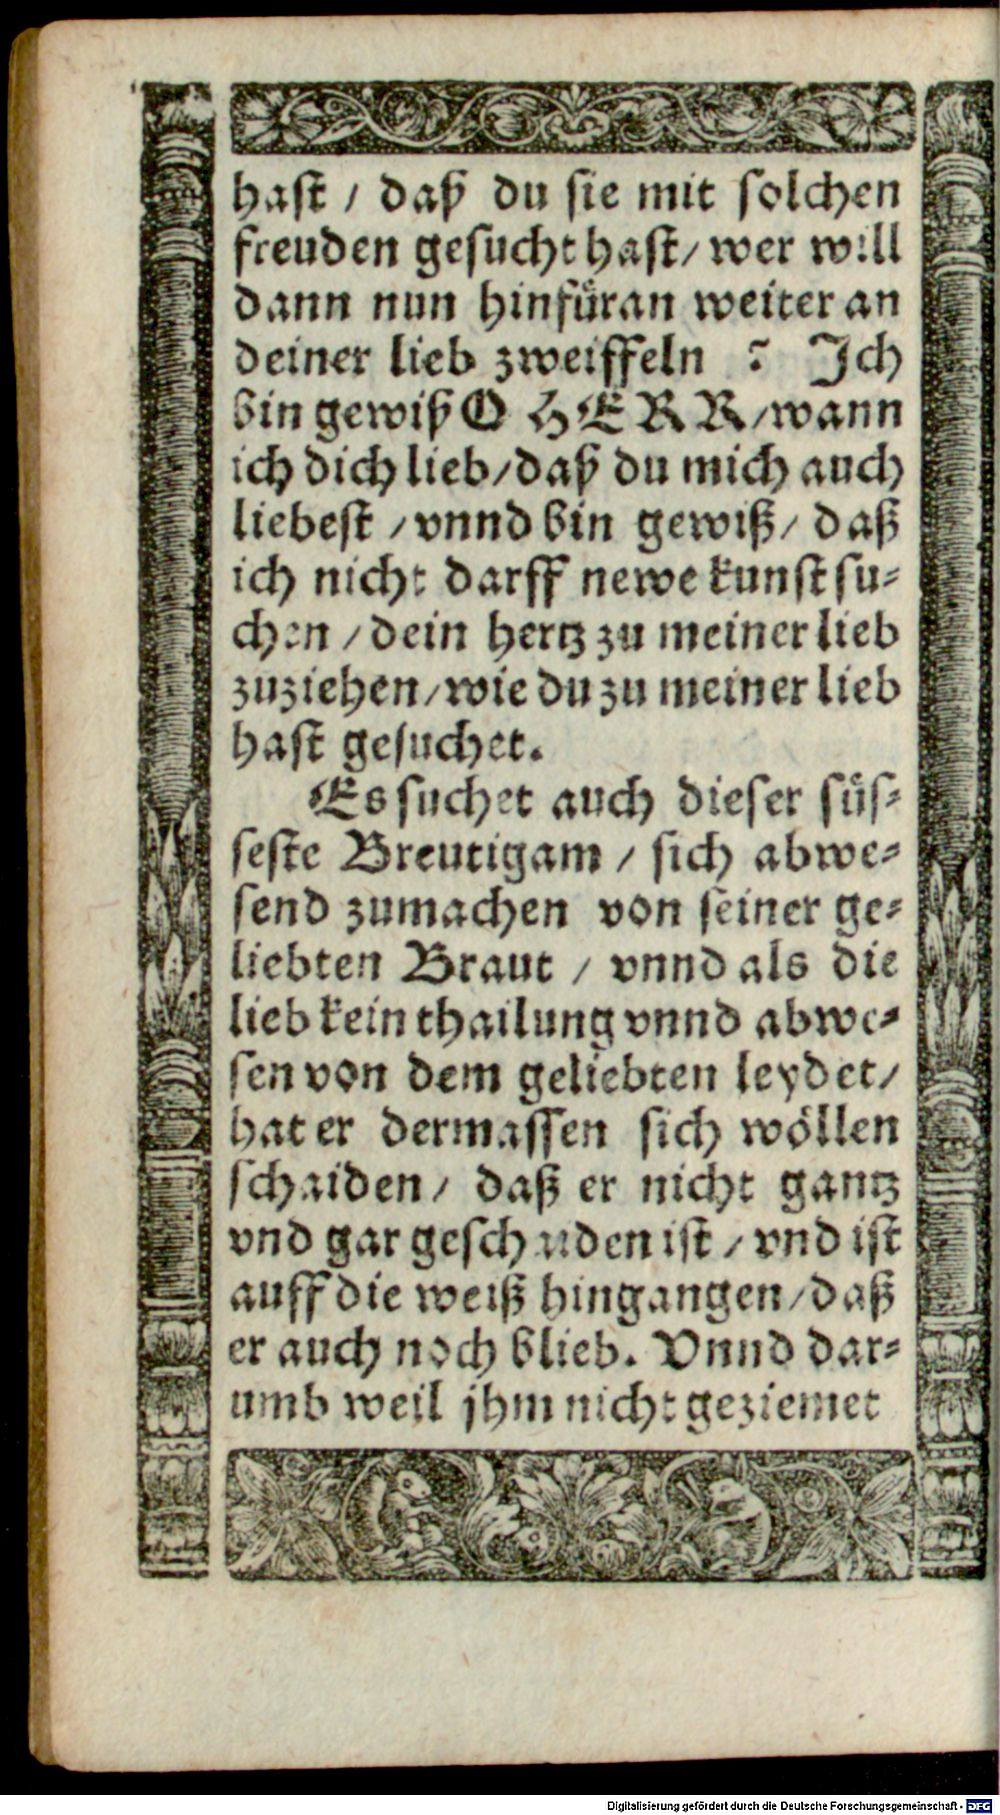 hast / daß du sie mit solchen
freuden gesucht hast / wer will
dann nun hinfüran weiter an
deiner lieb zweiffeln ? Ich
bin gewiß O HERR / wann
ich dich lieb / daß du mich auch
liebest / vnnd bin gewiß / daß
ich nicht darff newe kunst su-
chen / dein hertz zu meiner lieb
zuziehen / wie du zu meiner lieb
hast gesuchet.
Es suchet auch dieser süs-
seste Breutigam / sich abwe-
send zumachen von seiner ge-
liebten Braut / vnnd als die
lieb kein thailung vnnd abwe-
sen von dem geliebten leydet /
hat er dermassen sich wöllen
schaiden / daß er nicht gantz
vnd gar geschaiden ist / vnd ist
auff die weiß hingangen / daß
er auch noch blieb. Vnnd dar-
umb weil jhm nicht geziemet
Digitalisierung gefördert durch die Deutsche Forschungsgemeinschaft - DFG